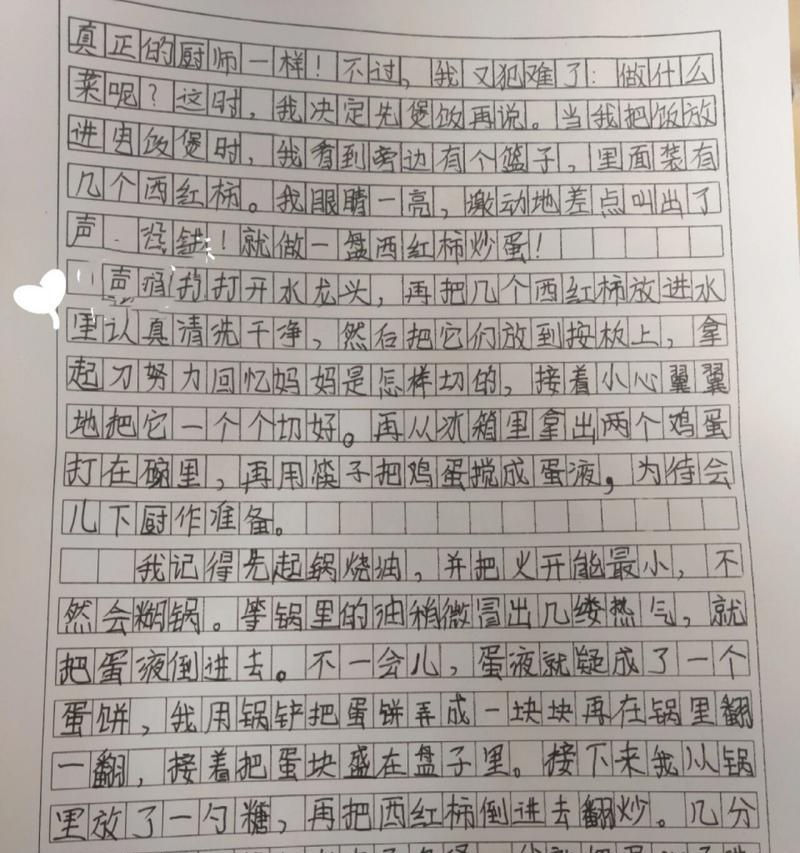 真正的厨师一样！不过，我又犯难了：做什么
菜呢？这时，我决定先煲饭再说。当我把饭放
进电饭煲时，我看到旁边有个篮子，里面装有
几个西红柿。我眼睛一亮，激动地差点叫出了
声 没错！就做一盘西红柿炒蛋！
打开水龙头，再把几个西红柿放进水
里认真清洗干净，然后把它们放到按板上，拿
起刀努力回忆妈妈是怎样切的，接着小心翼翼
地把它一个个切好。再从冰箱里拿出两个鸡蛋
打在碗里，再用筷子把鸡蛋搅成蛋液，为待会
儿下厨作准备。
我记得先起锅烧油，并把火开能最小，不
然会糊锅。等锅里的油稍微冒出几缕热气，就
把蛋液倒进去。不一会儿，蛋液就疑成了一个
蛋饼，我用锅铲把蛋饼弄成一块块再在锅里翻
一翻，接着把蛋块盛在盘子里。接下来我从锅
里放了一勺糖，再把西红柿倒进去翻炒。几分